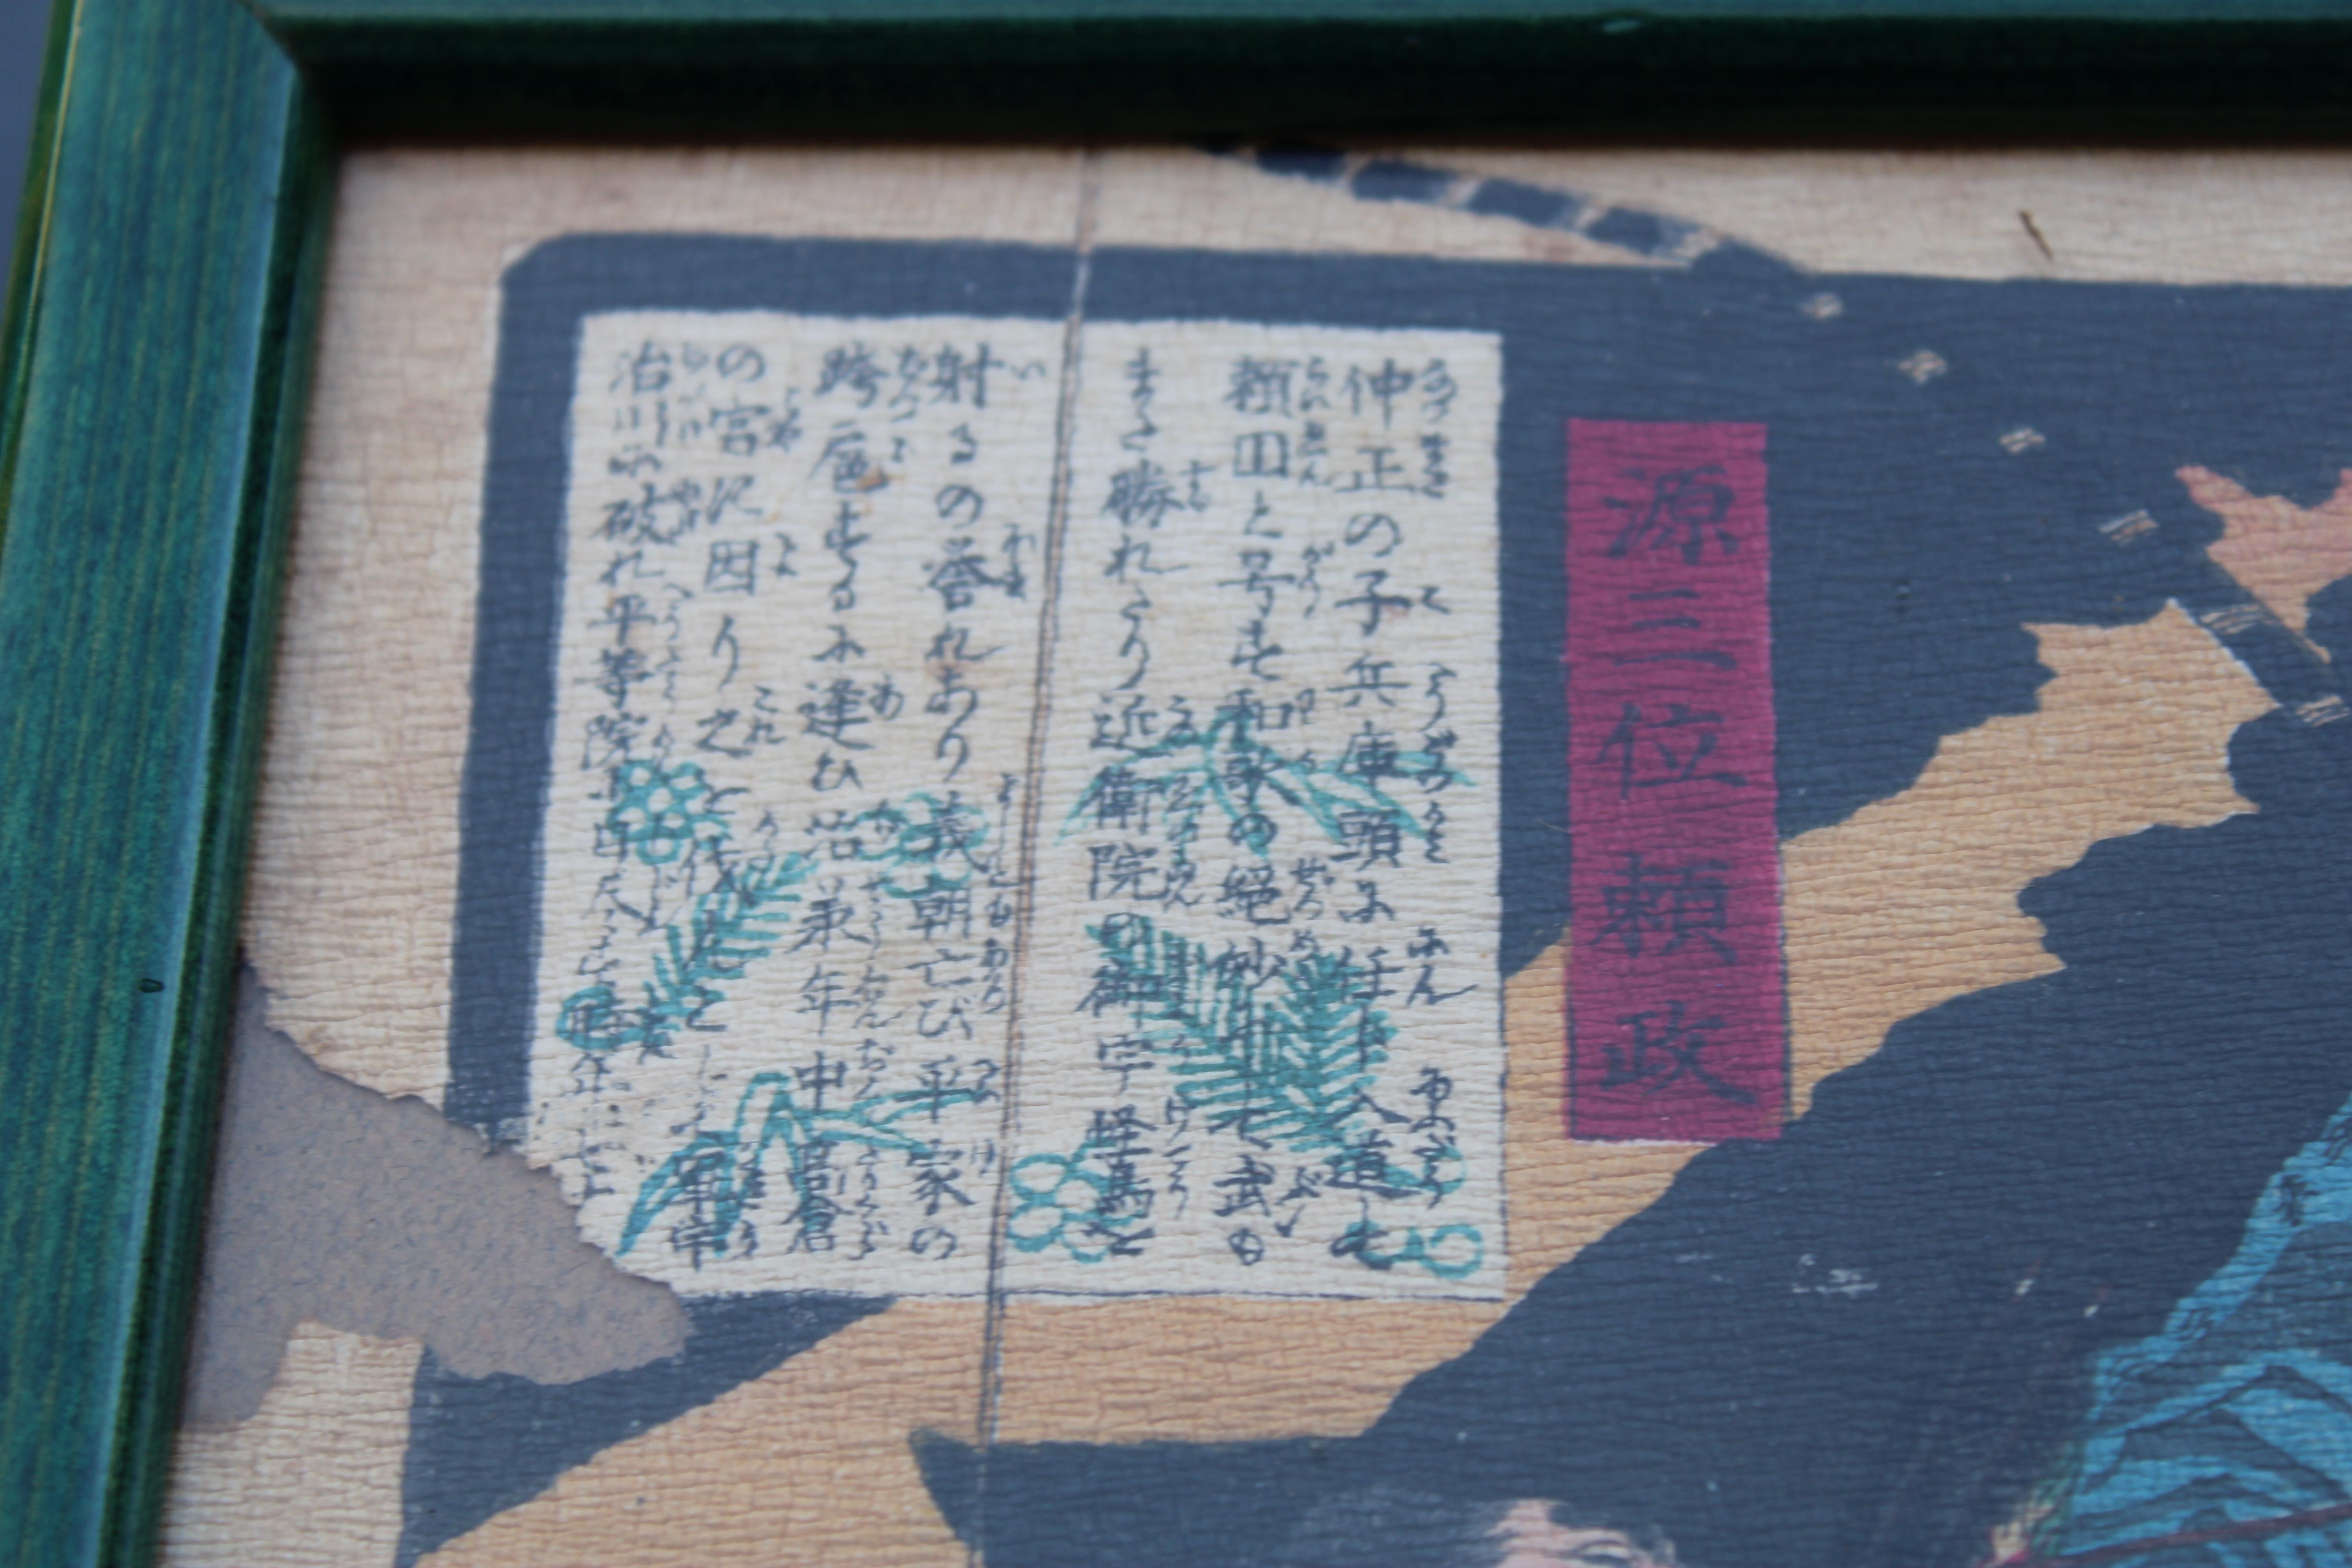 源三位頼政
仲正の子兵庫頭に任ド入道して
頼圓と号す和歌の絶妙にて武も
また勝れたり近衛院の御宇怪鳥を
射るの誉れあり義朝亡び平家の
跨扈するに逢ひ治承年中高倉
の宮に因り之を伐んと
治川に破れ平等院に自尽す